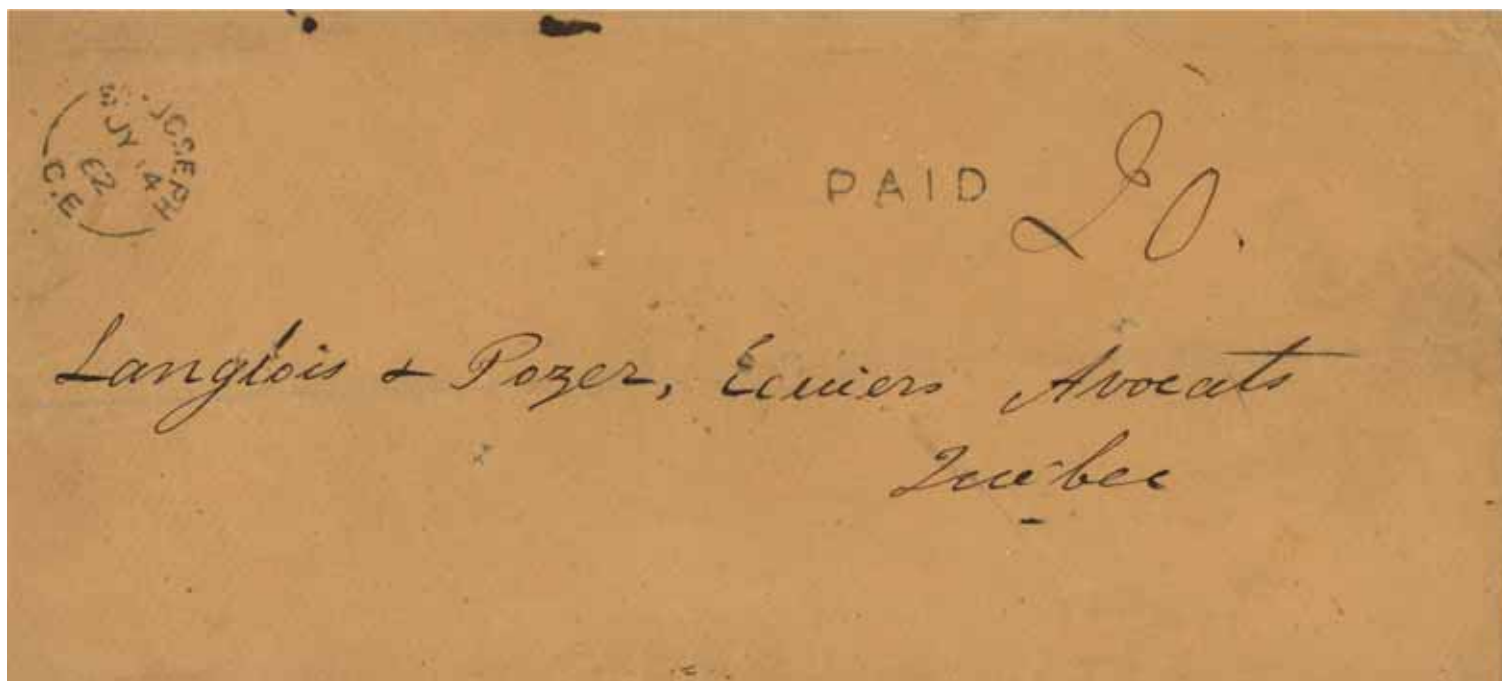 ST. JOSEPH
JY 14
62
C.E
PAID 20.
Langlois & Pozer, Ecuiers Avocats
Québec